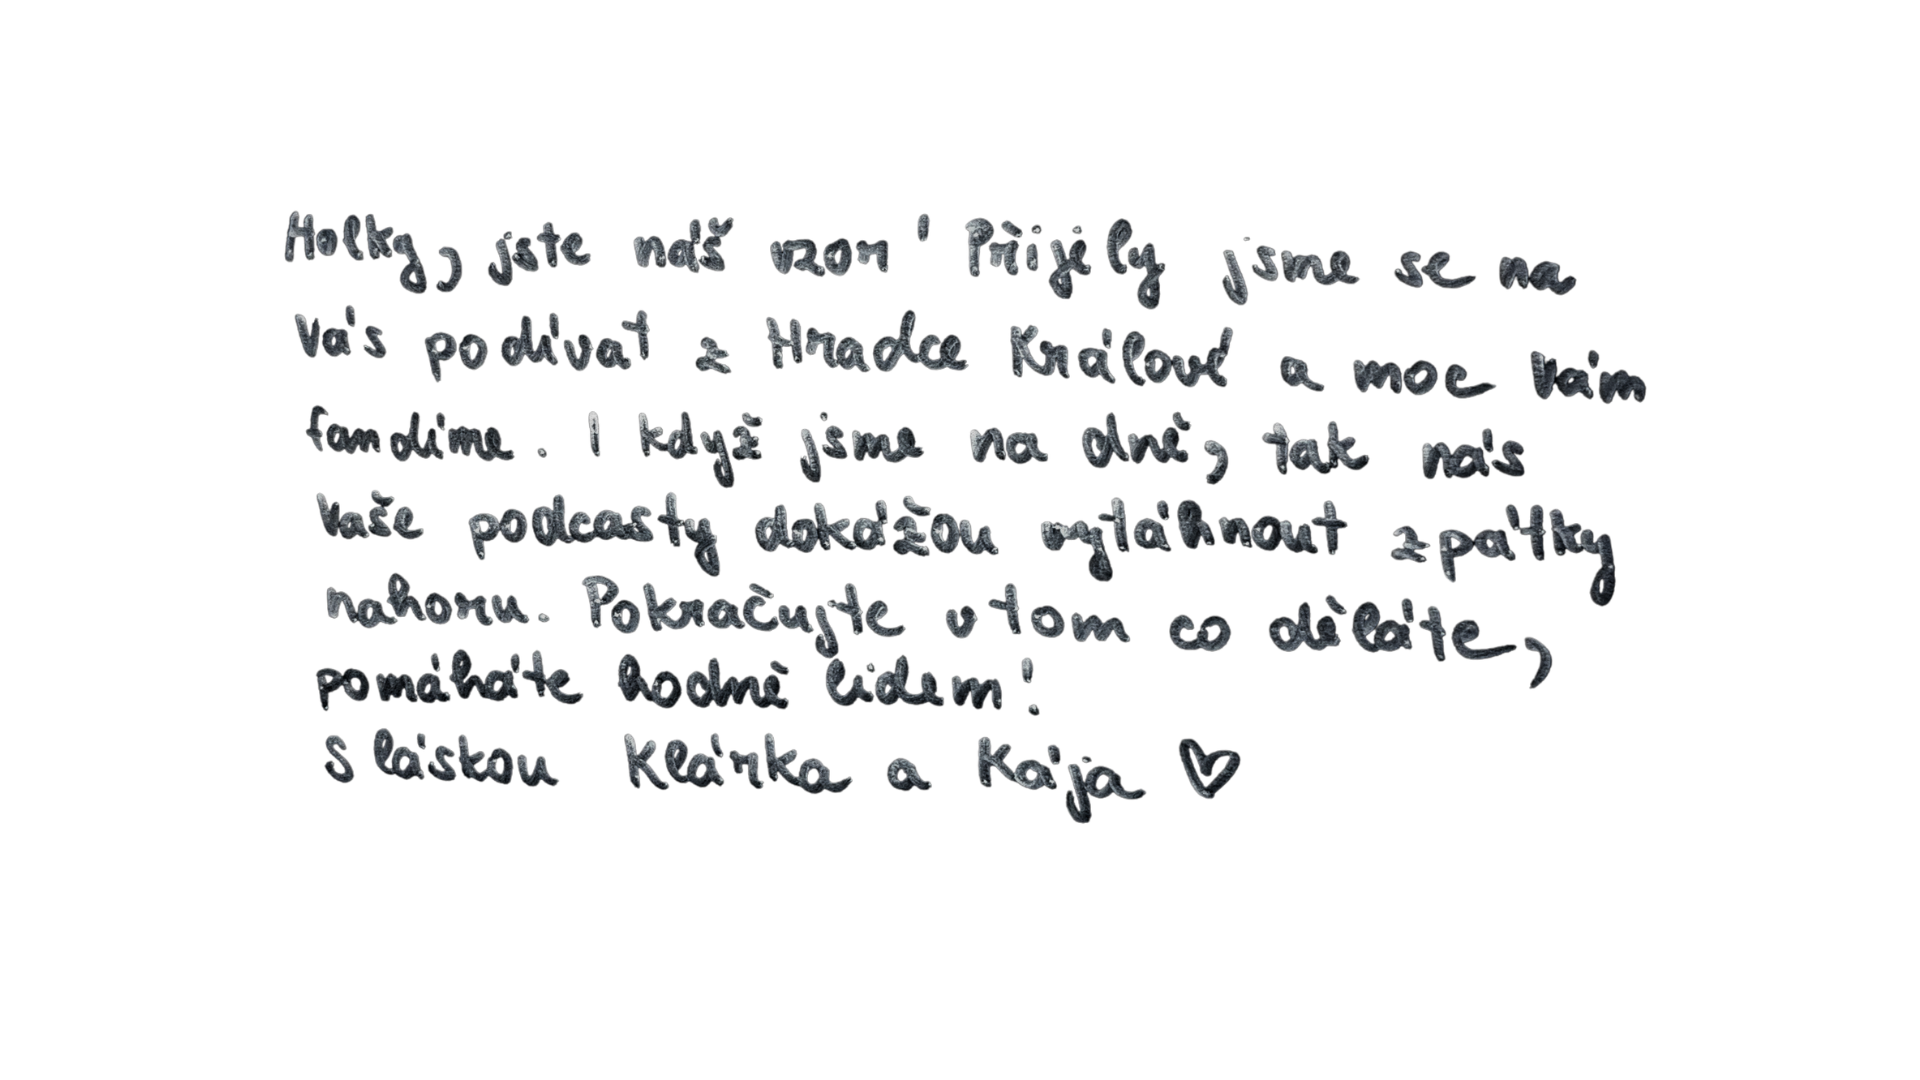 Holky, jste náš vzor! Přijely jsme se na
Vás podívat z Hradce Králové a moc Vám
fandíme. I když jsme na dně, tak nás
Vaše podcasty dokážou vytáhnout zpátky
nahoru. Pokračujte v tom co děláte,
pomáháte hodně lidem!
S láskou Klárka a Kája ♡